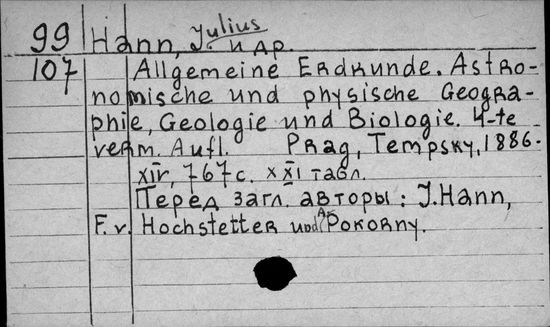 99 Hann, Julius и др.
107 Allgemeine Erdkunde. Astro-
nomische und physische Geogra-
phie, Geologie und Biologie. 4-te
verm. Aufl. Prag, Tempsky, 1886.
XIV, 767 с. XXI табл.
Перед загл. авторы: J. Hann,
F. v. Hochstetter und A. Pokorny.